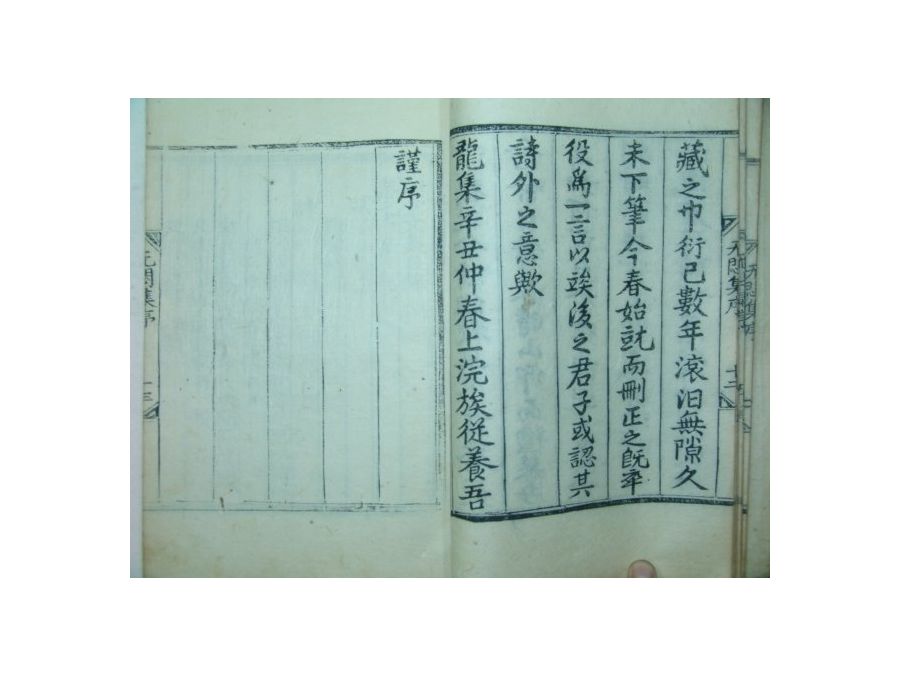 藏之巾衍已數年滚汩無隙久
未下筆今春始就而刪正之旣卒
役爲一言以竢後之君子或認其
詩外之意歟
龍集辛丑仲春上浣族從養吾
謹序
无悶集序